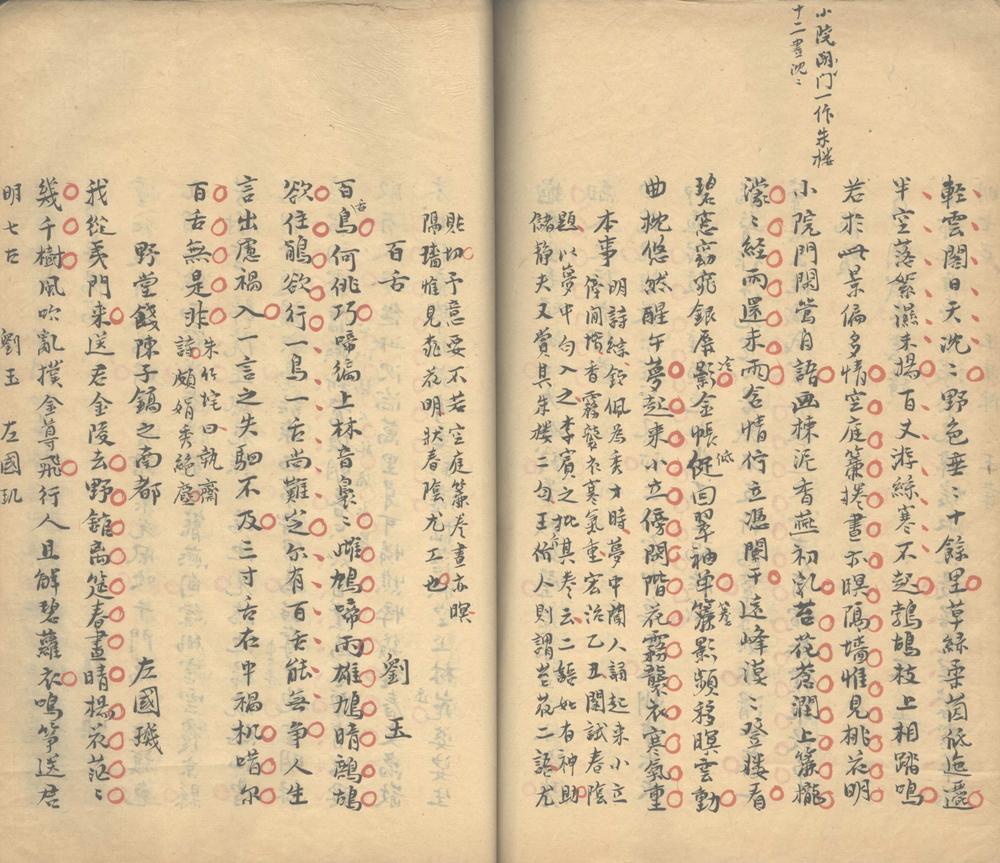 小院閉门一作朱楼
十二晝沈〻
軽雲閣日天沈〻野色垂〻十餘里草緑柔茵低迤邐
半空落絮濕未揚百丈游絲寒不起鵓鴣枝上相踏鳴
若於此景偏多情空庭簾捲晝亦暝隔墻惟見桃花明
小院門閑鶯自語画棟泥香燕初乳苔花蒼潤上簾櫳
濛〻經雨還未雨含情佇立憑闌干遠峰漠〻登楼看
碧窓窈窕銀屏影金帳低回翠袖单簾影頻移暝雲動
冷
低
曲枕悠然醒午夢起来小立傍閑階花霧襲衣寒氣重
本事 明詩綜鈴佩為秀才時夢中闻人誦起来小立
傍闲階香霧襲衣寒氣重宏治乙丑閣試春陰
題以夢中句入之李賓之批其卷云二語如有神助
儲静夫又賞其朱楼二句王伯人則謂苔花二語尤
貼切予意要不若空庭簾卷晝亦暝
隔墻惟見桃花明状春陰尤工也
百舌 劉玉
百鳥何俳巧啼徧上林音梟〻雌鳩啼雨雄鳩晴鸸鴣
舌
欲住鵑欲行一鳥一舌尚難並尔有百舌能無争人生
言出慮禍入一言之失駟不及三寸舌在中禍机嗜尔
百舌無是非
朱竹垞曰執齋
詩頗娟秀絶塵
野堂餞陳子鎬之南都 左國璣
我從夷門来送君金陵去野館离筵春晝晴楊花茫〻
幾千樹風吹亂撲金尊飛行人且解碧蘿衣鳴筝送君
明七古 劉玉 左國玑